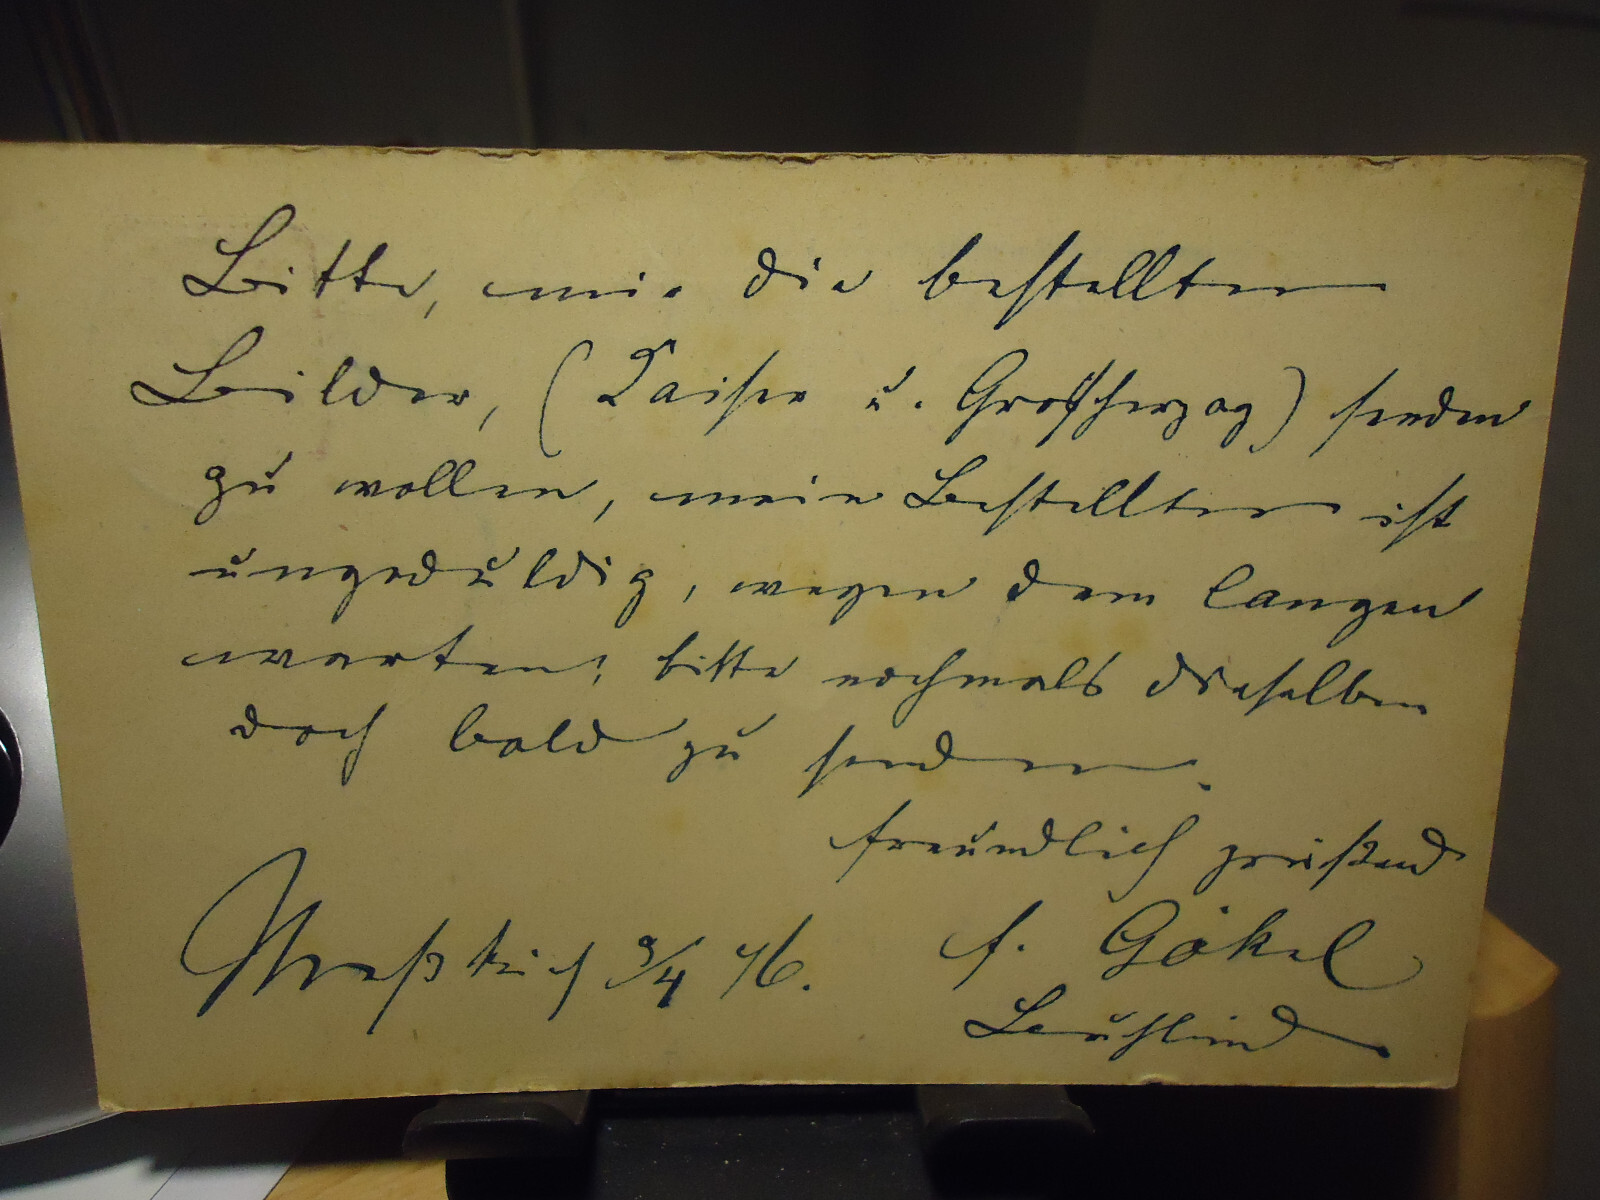 Bitte, mir die bestellten
Bilder, (Kaiser u. Großherzog) senden
zu wollen, mein Besteller ist
ungeduldig, wegen dem langen
warten; bitte nochmals dieselben
doch bald zu senden.
freundlich grüßend
Meßkirch 9/4 76. f. Gökel